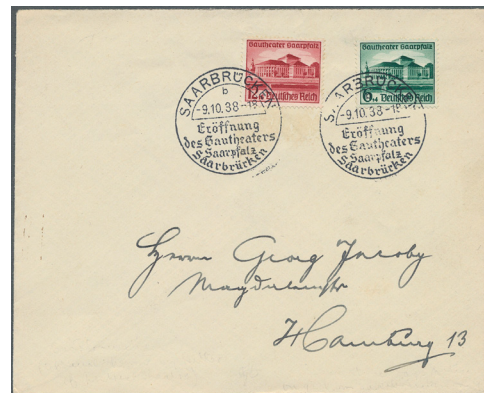 Gautheater Saarpfalz
Deutsches Reich
Gautheater Saarpfalz
6 Deutsches Reich
SAARBRÜCKEN
b
-9.10.38-18
Eröffnung
des Gautheaters
Saarpfalz
Saarbrücken
SAARBRÜCKEN
-9.10.38-18
Eröffnung
des Gautheaters
Saarpfalz
Saarbrücken
Herrn Georg Jacoby
Hamburg 13